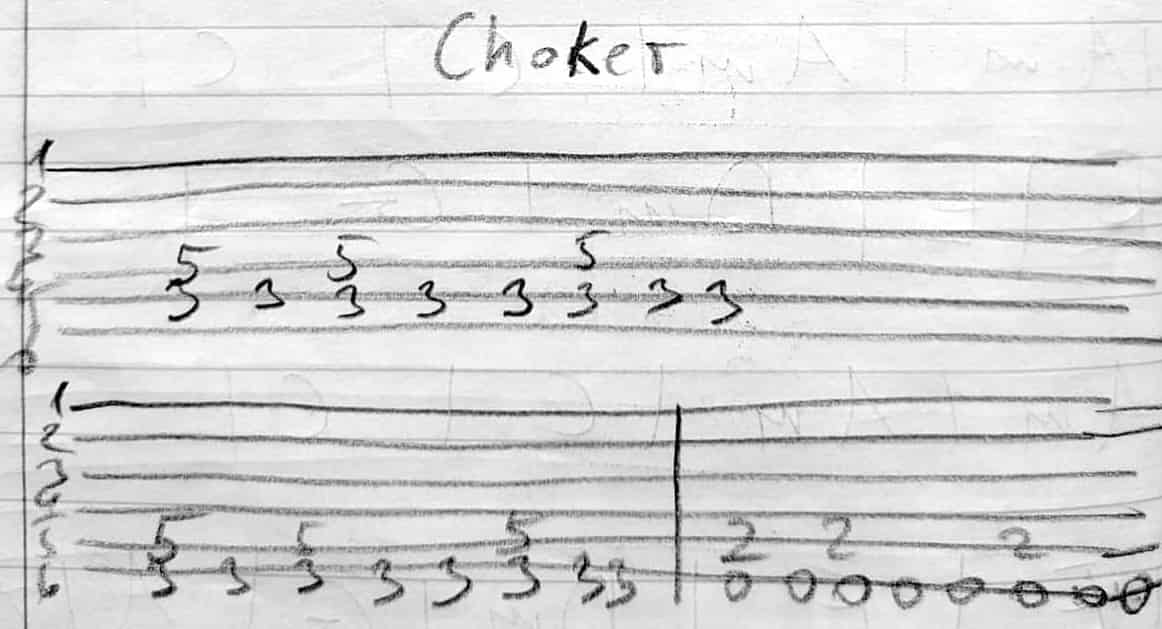 Choker
1
2
3
4
5
6
5 5 5
3 3 3 3 3 3 3 3
1
2
3
4
5
6
5 5 5 2 2 2
3 3 3 3 3 3 3 3 0 0 0 0 0 0 0 0